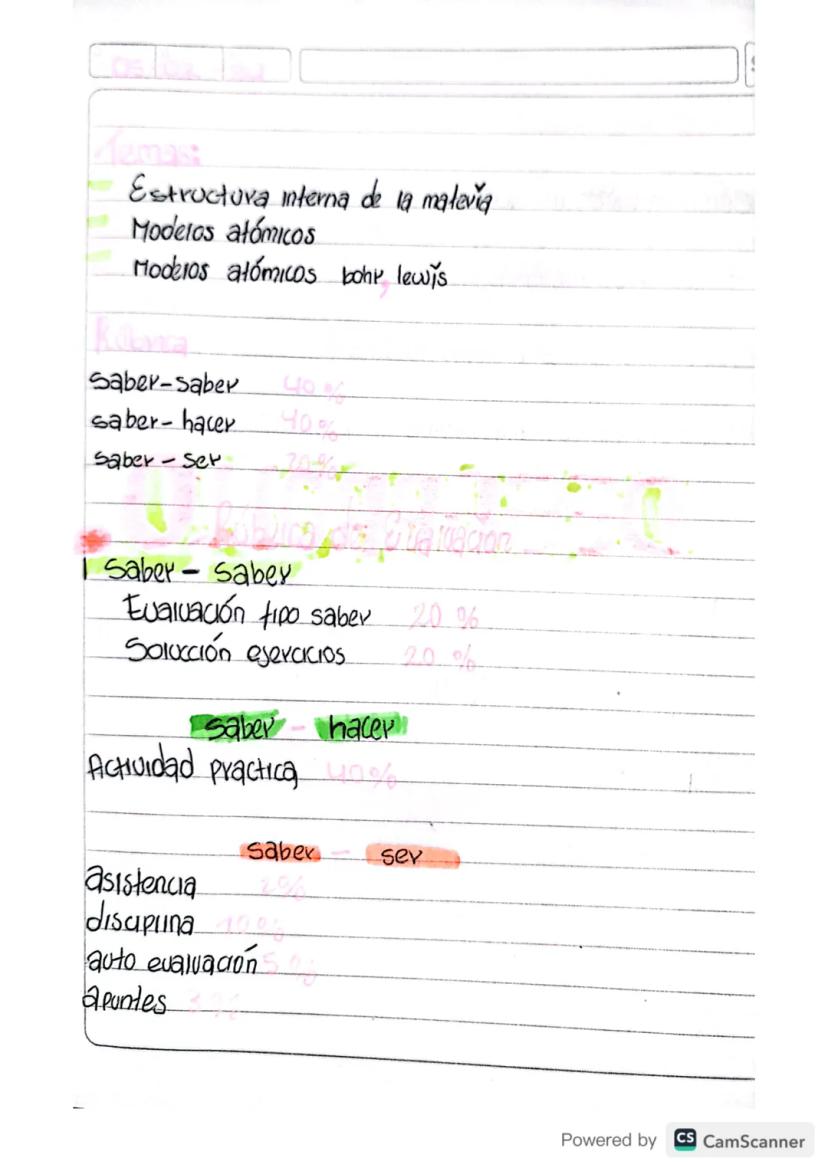 Temas:
Estructura interna de la materia
Modelos atómicos
Modelos atómicos bohr, lewis
Rúbrica
saber-saber 40%
saber-hacer 40%
saber-ser 20%
Rúbrica de Evaluación
1 saber - saber
Evaluación tipo saber 20 %
Solución ejercicios 20 %
saber - hacer
Actividad practica 40%
saber - ser
asistencia 2%
disciplina 10%
auto evaluación 5%
apuntes 3%
Powered by CS CamScanner